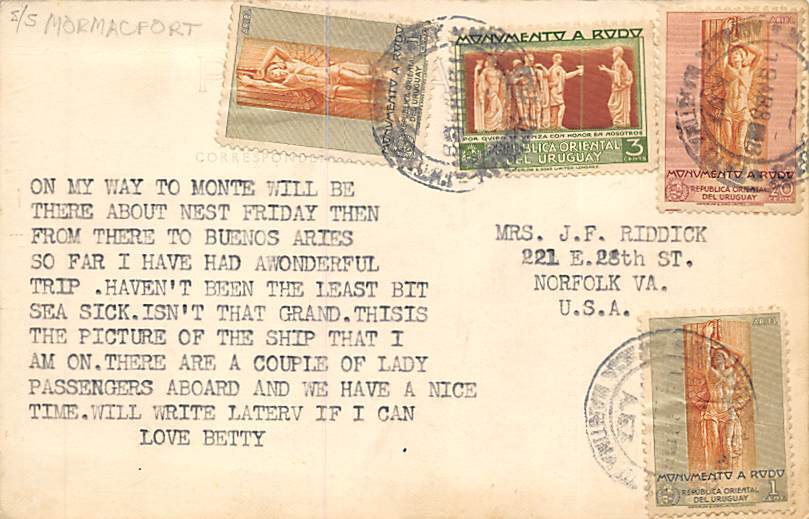 S/S MORMACFORT
ARIEL
MONUMENTO A RODO
REPUBLICA ORIENTAL
DEL URUGUAY
1
CENTS
MONUMENTO A RODO
POR QUIEN VENZA CON HONOR EN NOSOTROS
REPUBLICA ORIENTAL
DEL URUGUAY
3
CENTS
ARIEL
MONUMENTO A RODO
REPUBLICA ORIENTAL
DEL URUGUAY
20
CENTS
CORRESPONDENCE
ON MY WAY TO MONTE WILL BE
THERE ABOUT NEST FRIDAY THEN
FROM THERE TO BUENOS ARIES
SO FAR I HAVE HAD AWONDERFUL
TRIP .HAVEN'T BEEN THE LEAST BIT
SEA SICK.ISN'T THAT GRAND.THISIS
THE PICTURE OF THE SHIP THAT I
AM ON.THERE ARE A COUPLE OF LADY
PASSENGERS ABOARD AND WE HAVE A NICE
TIME.WILL WRITE LATERV IF I CAN
LOVE BETTY
MRS. J.F. RIDDICK
221 E.28th ST.
NORFOLK VA.
U.S.A.
ARIEL
MONUMENTO A RODO
REPUBLICA ORIENTAL
DEL URUGUAY
1
CENTS